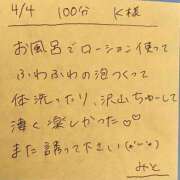 4/4 100分 K様
お風呂でローション使って
ふわふわの泡つくって
体洗ったり、沢山ちゅーして
凄く楽しかった♡♡
また誘って下さい(*˘︶˘*)
みと